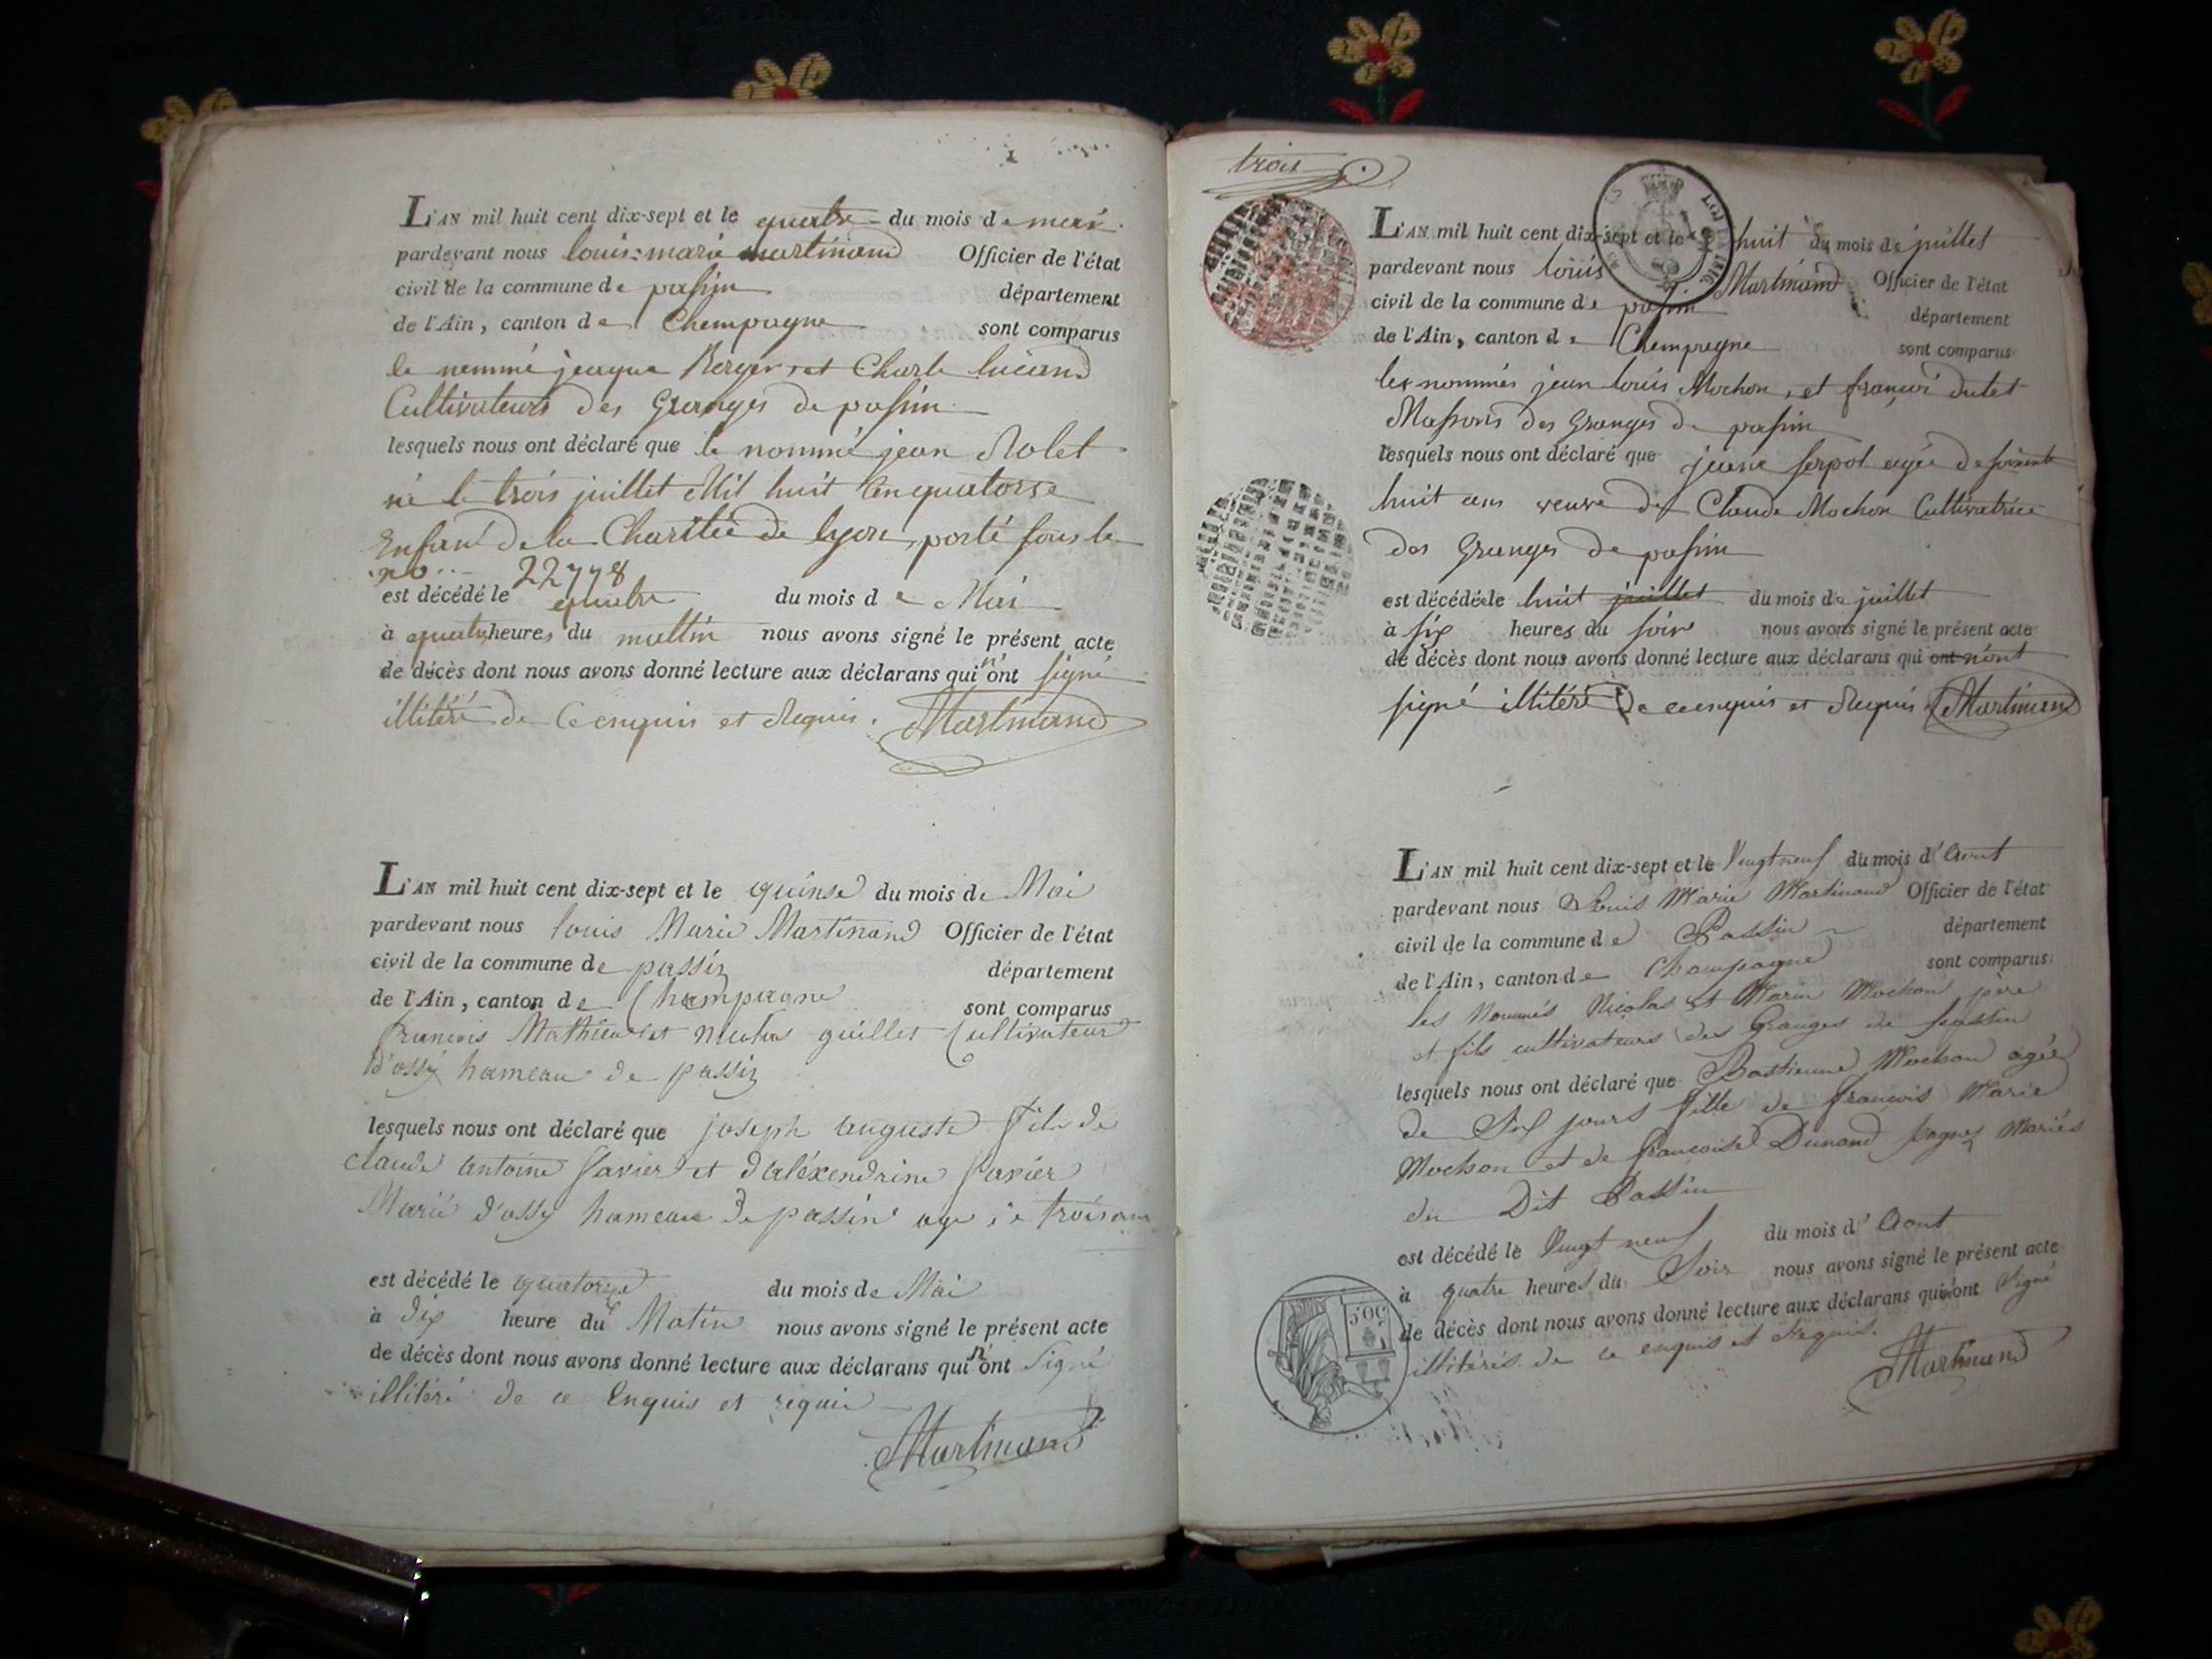 L'AN mil huit cent dix-sept et le quatre du mois de mai
pardevant nous louis-marie martinand Officier de l'état
civil de la commune de passin département
de l'Ain, canton de Chempagne sont comparus
le nommé jeaque Berger et Charle lucand
Cultivateurs des Granges de passin
lesquels nous ont déclaré que le nommé jean Rolet
né le trois juillet Mil huit Cen quatorse
Enfant de la Charitée de lyon, porté sous le
no 22778
est décédé le quatre du mois de Mai
à quatre heures du mattin nous avons signé le présent acte
de décès dont nous avons donné lecture aux déclarans qui n'ont signé
illitéré de Ce enquis et Requis. Martinand
L'AN mil huit cent dix-sept et le quinse du mois de Mai
pardevant nous louis Marie Martinand Officier de l'état
civil de la commune de passin département
de l'Ain, canton de Champagne sont comparus
francois Mathieu et nicolas guillet Cultivateur
d'ossy hameau de passin
lesquels nous ont déclaré que joseph auguste fils de
claude antoine savier et d'aléxendrine savier
Marié d'ossy hameau de passin age de trois ans
est décédé le quatorze du mois de Mai
à dix heure du Matin nous avons signé le présent acte
de décès dont nous avons donné lecture aux déclarans qui n'ont Signé
illitéré de ce Enquis et requis
Martinand
trois
L'AN mil huit cent dix-sept et le huit du mois de juillet
pardevant nous louis Martinand Officier de l'état
civil de la commune de passin département
de l'Ain, canton de Chempagne sont comparus
les nommés jean louis Mochon, et françoi dutet
Massons des Granges de passin
lesquels nous ont déclaré que jeane serpol agée de soixente
huit ans veuve de Claude Mochon Cultivatrice
des Granges de passin
est décédée le huit juillet du mois de juillet
à six heures du soir nous avons signé le présent acte
de décès dont nous avons donné lecture aux déclarans qui ont n'ont
signé illitéré de ce enquis et Requis. Martinand
L'AN mil huit cent dix-sept et le Vingt neuf du mois d'Aout
pardevant nous Louis Marie Martinand Officier de l'état
civil de la commune de Passin département
de l'Ain, canton de Champagne sont comparus
les Nommés Nicolas et Marin Mochon père
et fils cultivateurs des Granges de passin
lesquels nous ont déclaré que Bastienne Mochon agée
de Six jours fille de francois Marie
Mochon et de francoise Dunand Mariés
du Dit Passin
est décédé le Vingt neuf du mois d'Aout
à quatre heures du Soir nous avons signé le présent acte
de décès dont nous avons donné lecture aux déclarans qui n'ont Signé
illitérés de ce enquis et Requis.
50C
Martinand